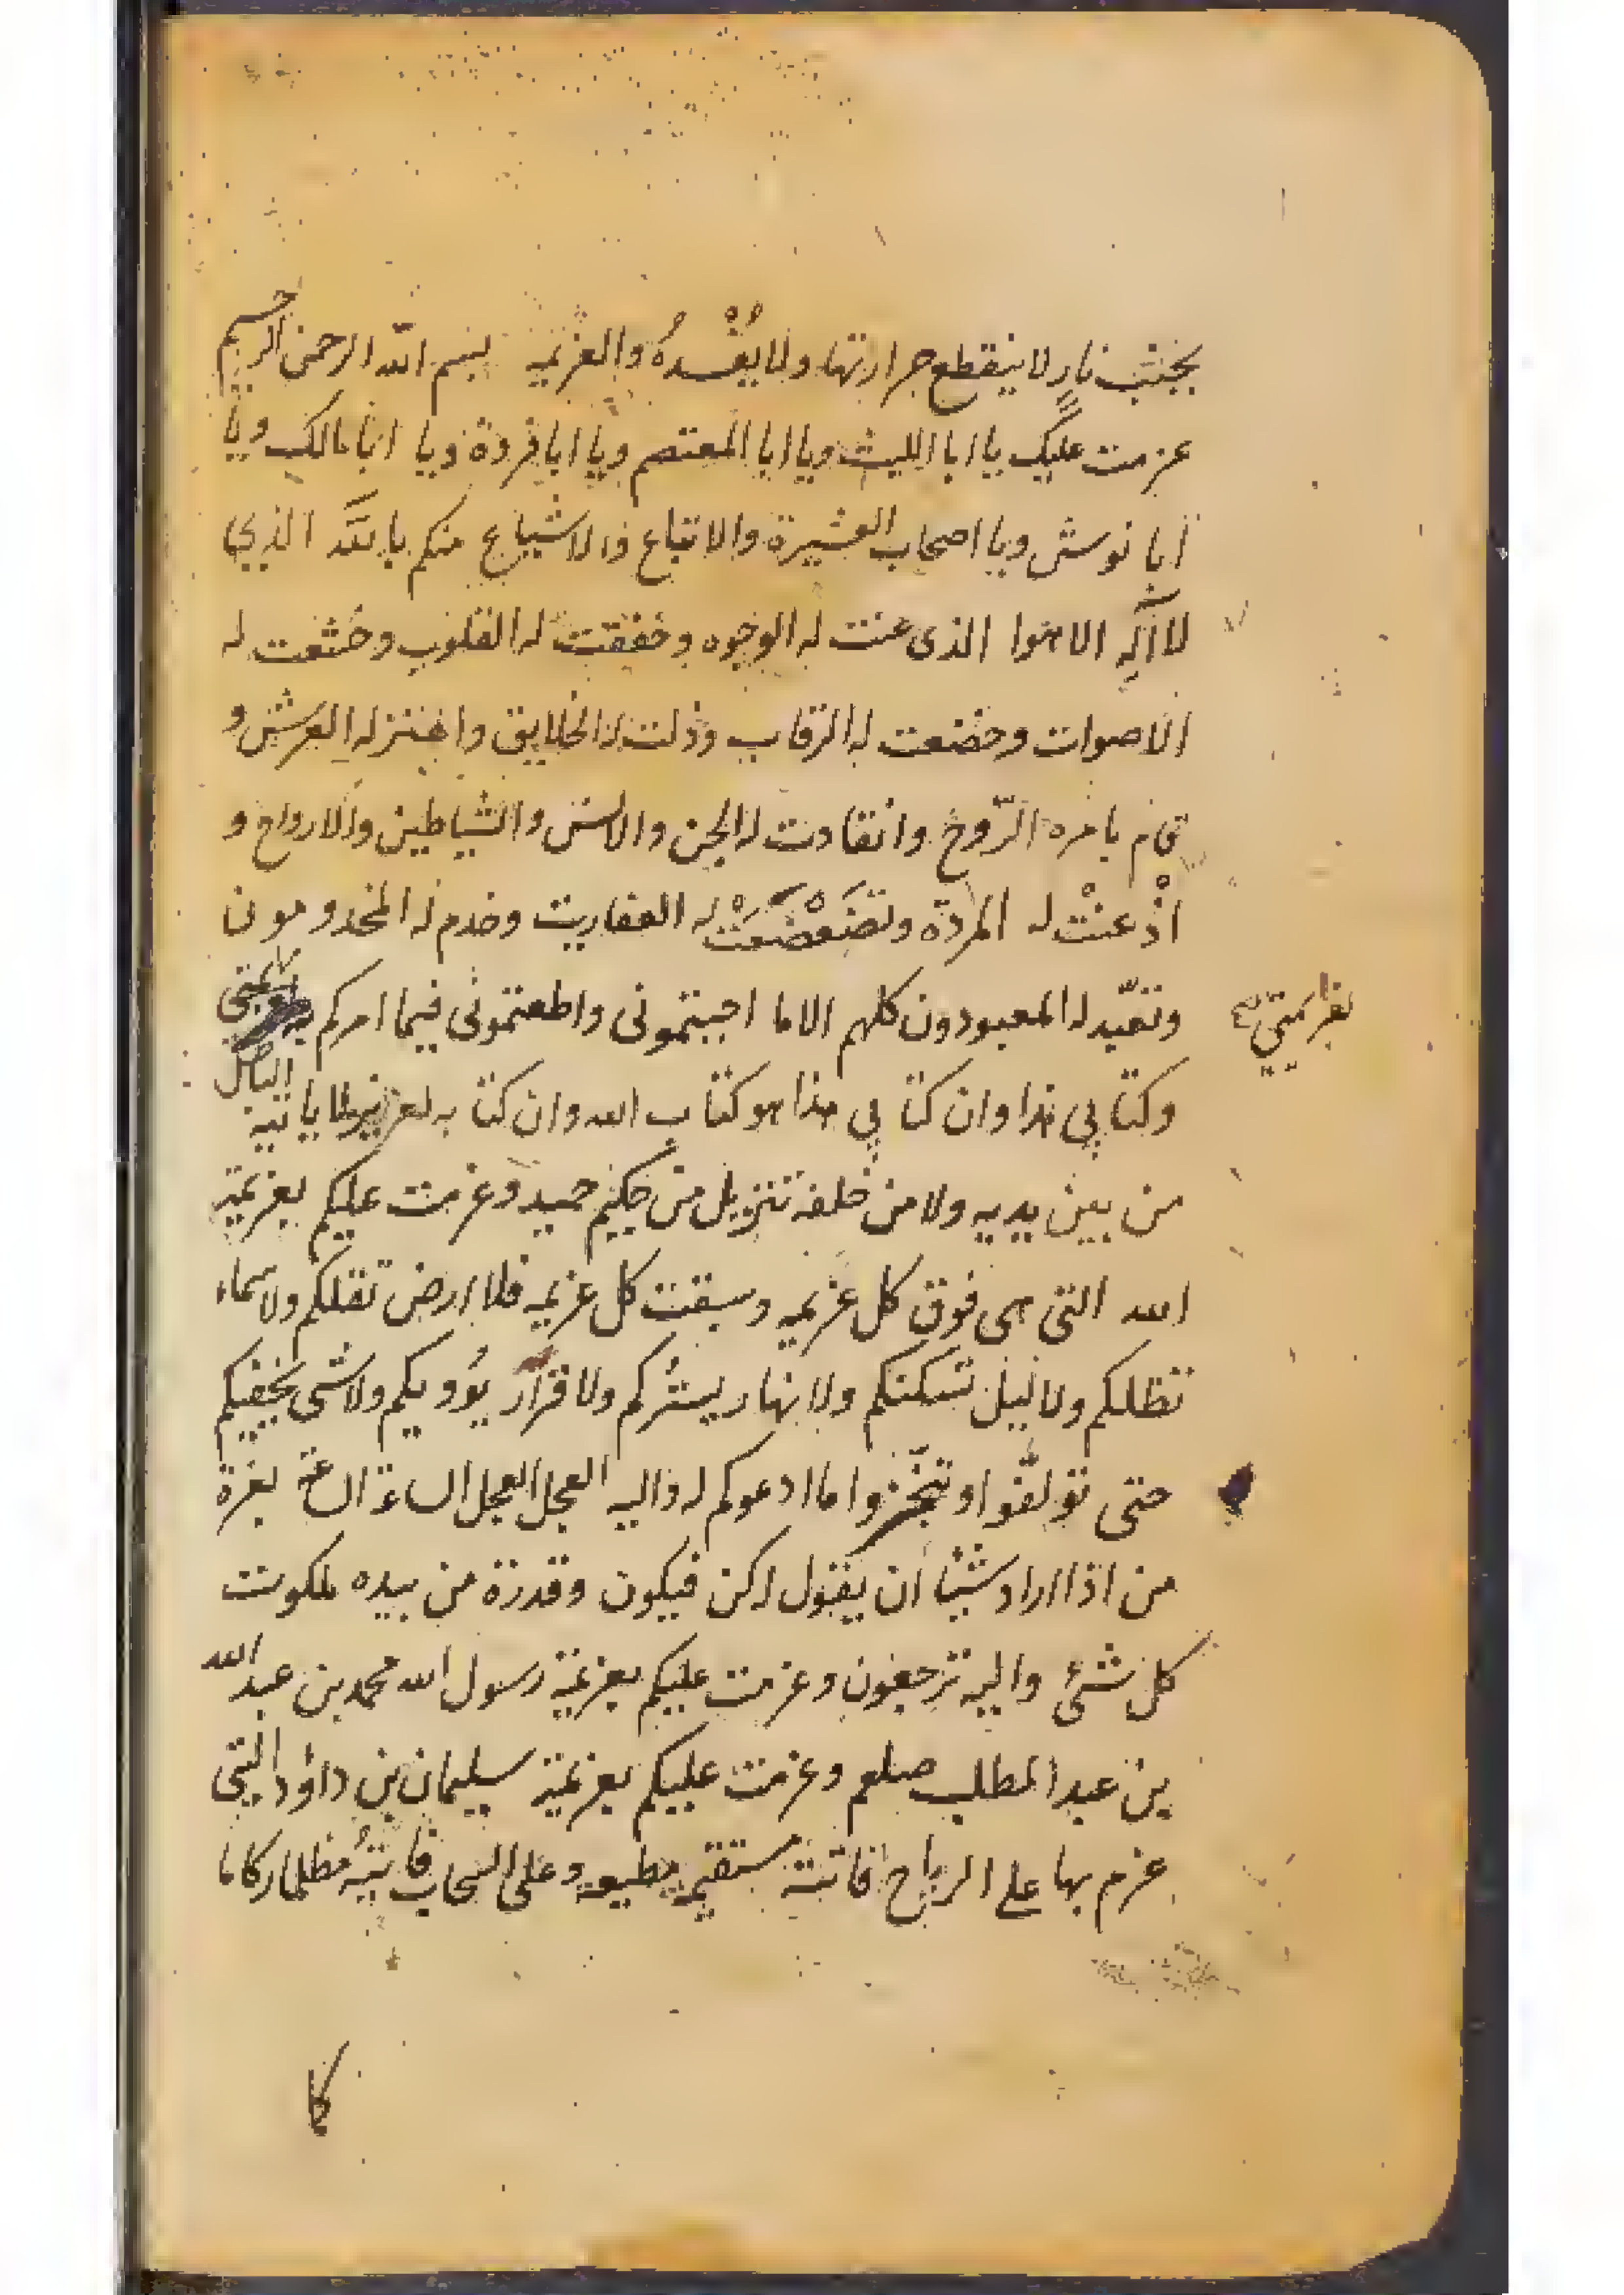 بجنب نارٍ لا ينقطع حرارتها ولا يُفْسدهُ والعزيمه بسم الله الرحمن الرحيم
عزمت عليك يا ابا الليث ويا ابا المعتصم ويا ابا فروة ويا ابا مالك ويا
ابا نوش ويا اصحاب العشيرة والاتباع والاشياع منكم بالله الذي
لا اله الا هوا الذى عنت له الوجوه وخفقت له القلوب وخشعت له
الاصوات وخضعت له الرقاب وذلت له الخلايق واهتز له العرش و
قام بامره الرّوح وانقادت له الجن والانس والشياطين والارواح و
اذْعنتْ له المردة وتضَعْضَعَتْ له العفاريت وخدم له المخدومون
وتعبّد له المعبودون كلهم الا ما اجبتمونى واطعتمونى فيما امركم به
بعزيمتي
وكتابي هذا وان كتابي هذا هو كتاب الله وان كتابه لعزيز لا ياتيه الباطل
من بين يديه ولا من خلفه تنزيل من حكيم حميد وعزمت عليكم بعزيمة
الله التى هى فوق كل عزيمه وسبقت كل عزيمه فلا ارض تقلكم ولا سماء
تظلكم ولا ليل تسكنكم ولا نهار يستركم ولا قرار يؤويكم ولا شى يخفيكم
حتى توّلفوا وتنجّزوا ما ادعوكم له واليه العجل العجل الساعة الساعة بعزة
من اذا اراد شيئا ان يقول له كن فيكون وقدرة من بيده ملكوت
كل شئ واليه ترجعون وعزمت عليكم بعزيمة رسول الله محمد بن عبد الله
بن عبد المطلب صلعم وعزمت عليكم بعزيمة سليمان بن داؤد التي
عزم بها على الرياح فاتته مستقيمه مطيعه وعلى السحاب فاتتهُ مظلما ركاما
كا